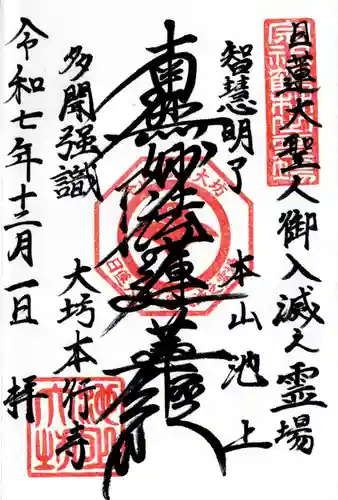 日蓮大聖人御入滅之霊場
智慧明了
本山池上
南無妙法蓮華経
多聞强識
大坊本行寺
令和七年十二月一日 拝